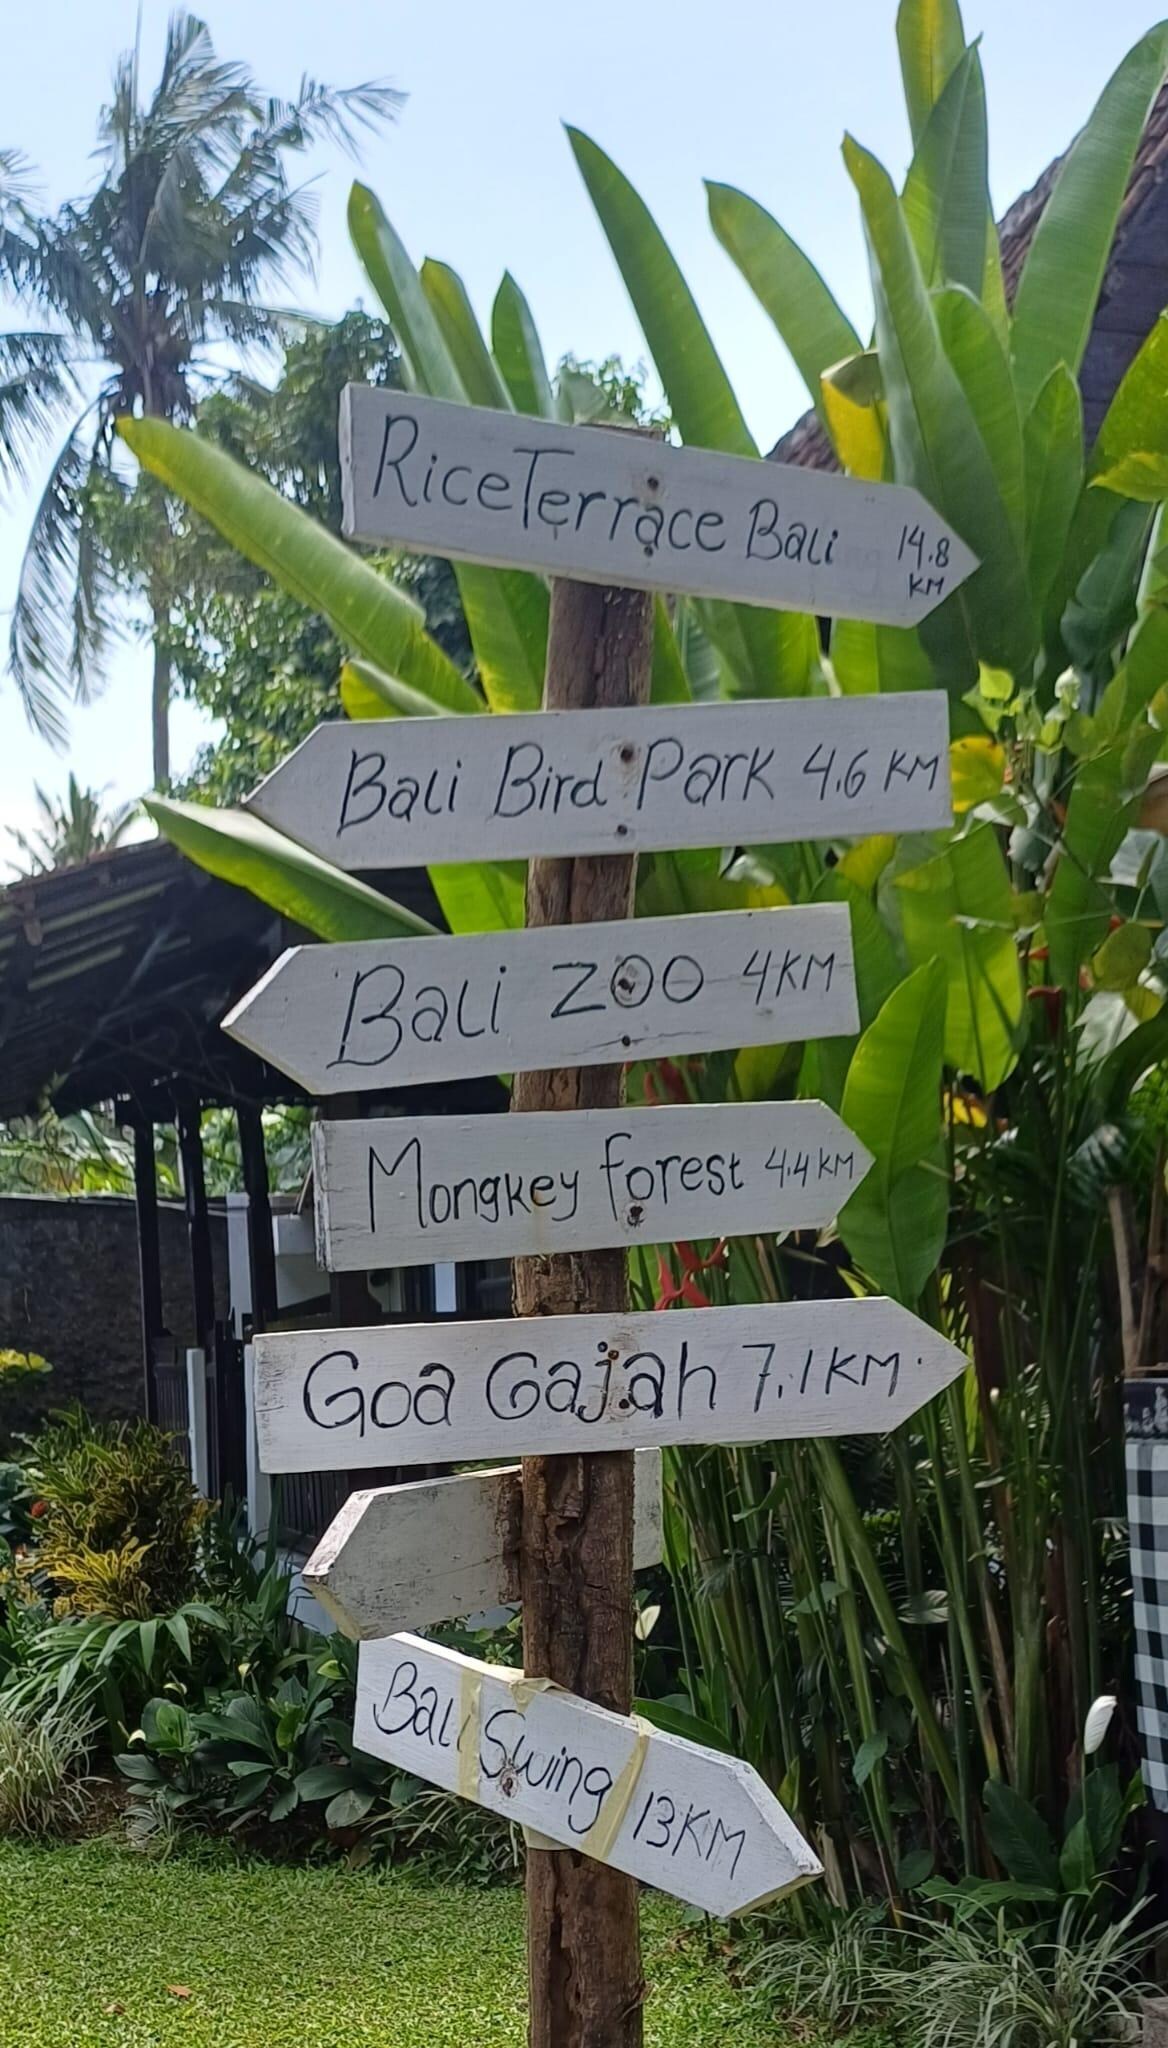 Rice Terrace Bali 14.8 KM
Bali Bird Park 4.6 KM
Bali ZOO 4KM
Mongkey forest 4.4 KM
Goa Gajah 7.1 KM.
Bali Swing 13KM